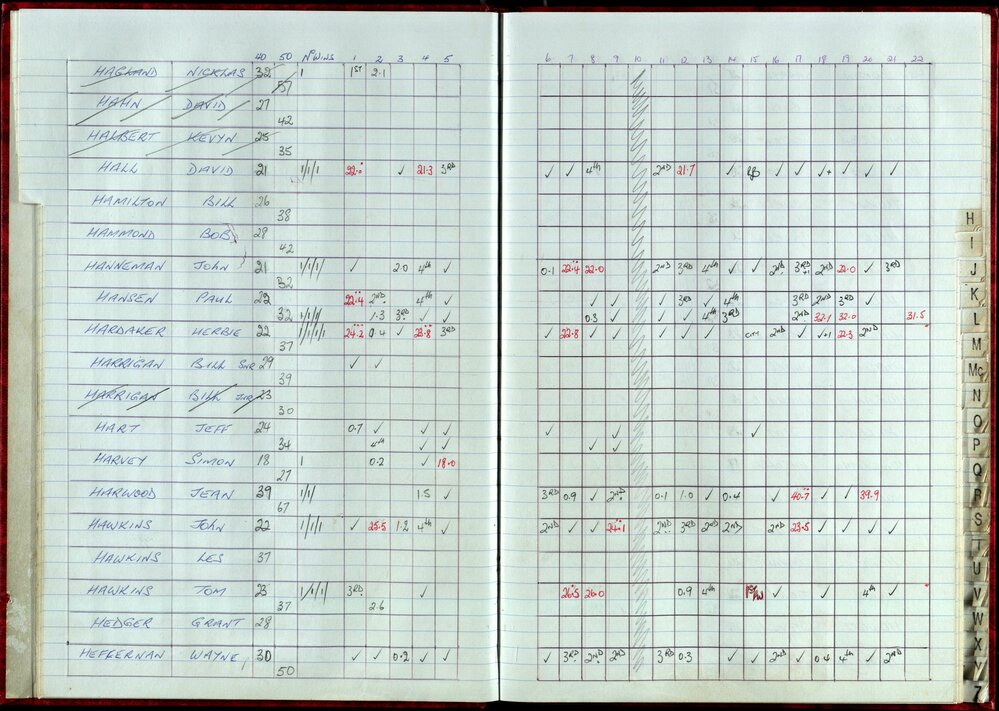 40 50 No WINS 1 2 3 4 5 6 7 8 9 10 11 12 13 14 15 16 17 18 19 20 21 22
HAGLAND NICKLAS 32 1 1ST 2.1
57
HAHN DAVID 27
42
HALBERT KEVYN 25
35
HALL DAVID 21 1/1/1 22.0 ✓ 21.3 3RD ✓ ✓ 4th 2ND 21.7 ✓ ✓ ✓ ✓ ✓ ✓
HAMILTON BILL 26
38
HAMMOND BOB 29
42
HANNEMAN JOHN 21 1/1/1/ ✓ 2.0 4th ✓ 0.1 22.4 22.0 2ND 3RD 4th ✓ ✓ 2ND 3RD 2ND 22.0 ✓ 3RD
32
HANSEN PAUL 22 22.4 2ND 4th ✓ ✓ ✓ ✓ 3RD ✓ 4th 3RD 2ND 3RD ✓
32 1.3 3RD ✓ ✓ 0.3 ✓ ✓ ✓ 4th 3RD 2ND 32.1 32.0 31.5
HARDAKER HERBIE 22 24.2 0.4 ✓ 23.8 3RD ✓ 22.8 ✓ ✓ ✓ ✓ ✓ 2ND ✓ 22.3 2ND
37
HARRIGAN BILL SNR 29 ✓ ✓
39
HARRIGAN BILL JNR 23
30
HART JEFF 24 0.7 ✓ ✓ ✓ ✓ ✓ ✓
34 4th ✓ ✓ ✓ ✓
HARVEY SIMON 18 1 0.2 ✓ 18.0
27
HARWOOD JEAN 39 1/1/ 1.5 ✓ 3RD 0.9 ✓ 2ND 0.1 1.0 ✓ 0.4 ✓ 40.7 ✓ ✓ 39.9
67
HAWKINS JOHN 22 1/1/1 ✓ 25.5 1.2 4th ✓ 2ND ✓ ✓ 24.1 2ND 3RD 2ND 2ND 2ND 23.5 ✓ ✓ ✓ ✓
HAWKINS LES 37
HAWKINS TOM 23 1/1/1 3RD ✓ 26.5 26.0 0.9 4th ✓ ✓ 4th ✓
37 2.6
HEDGER GRANT 28
HEFFERNAN WAYNE 30 ✓ ✓ 0.2 ✓ ✓ ✓ 3RD 2ND 2ND 3RD 0.3 ✓ ✓ 2ND ✓ 0.4 4th ✓ 2ND
50
H
I
J
K
L
M
Mc
N
O
P
Q
R
S
T
U
V
W
X
Y
Z